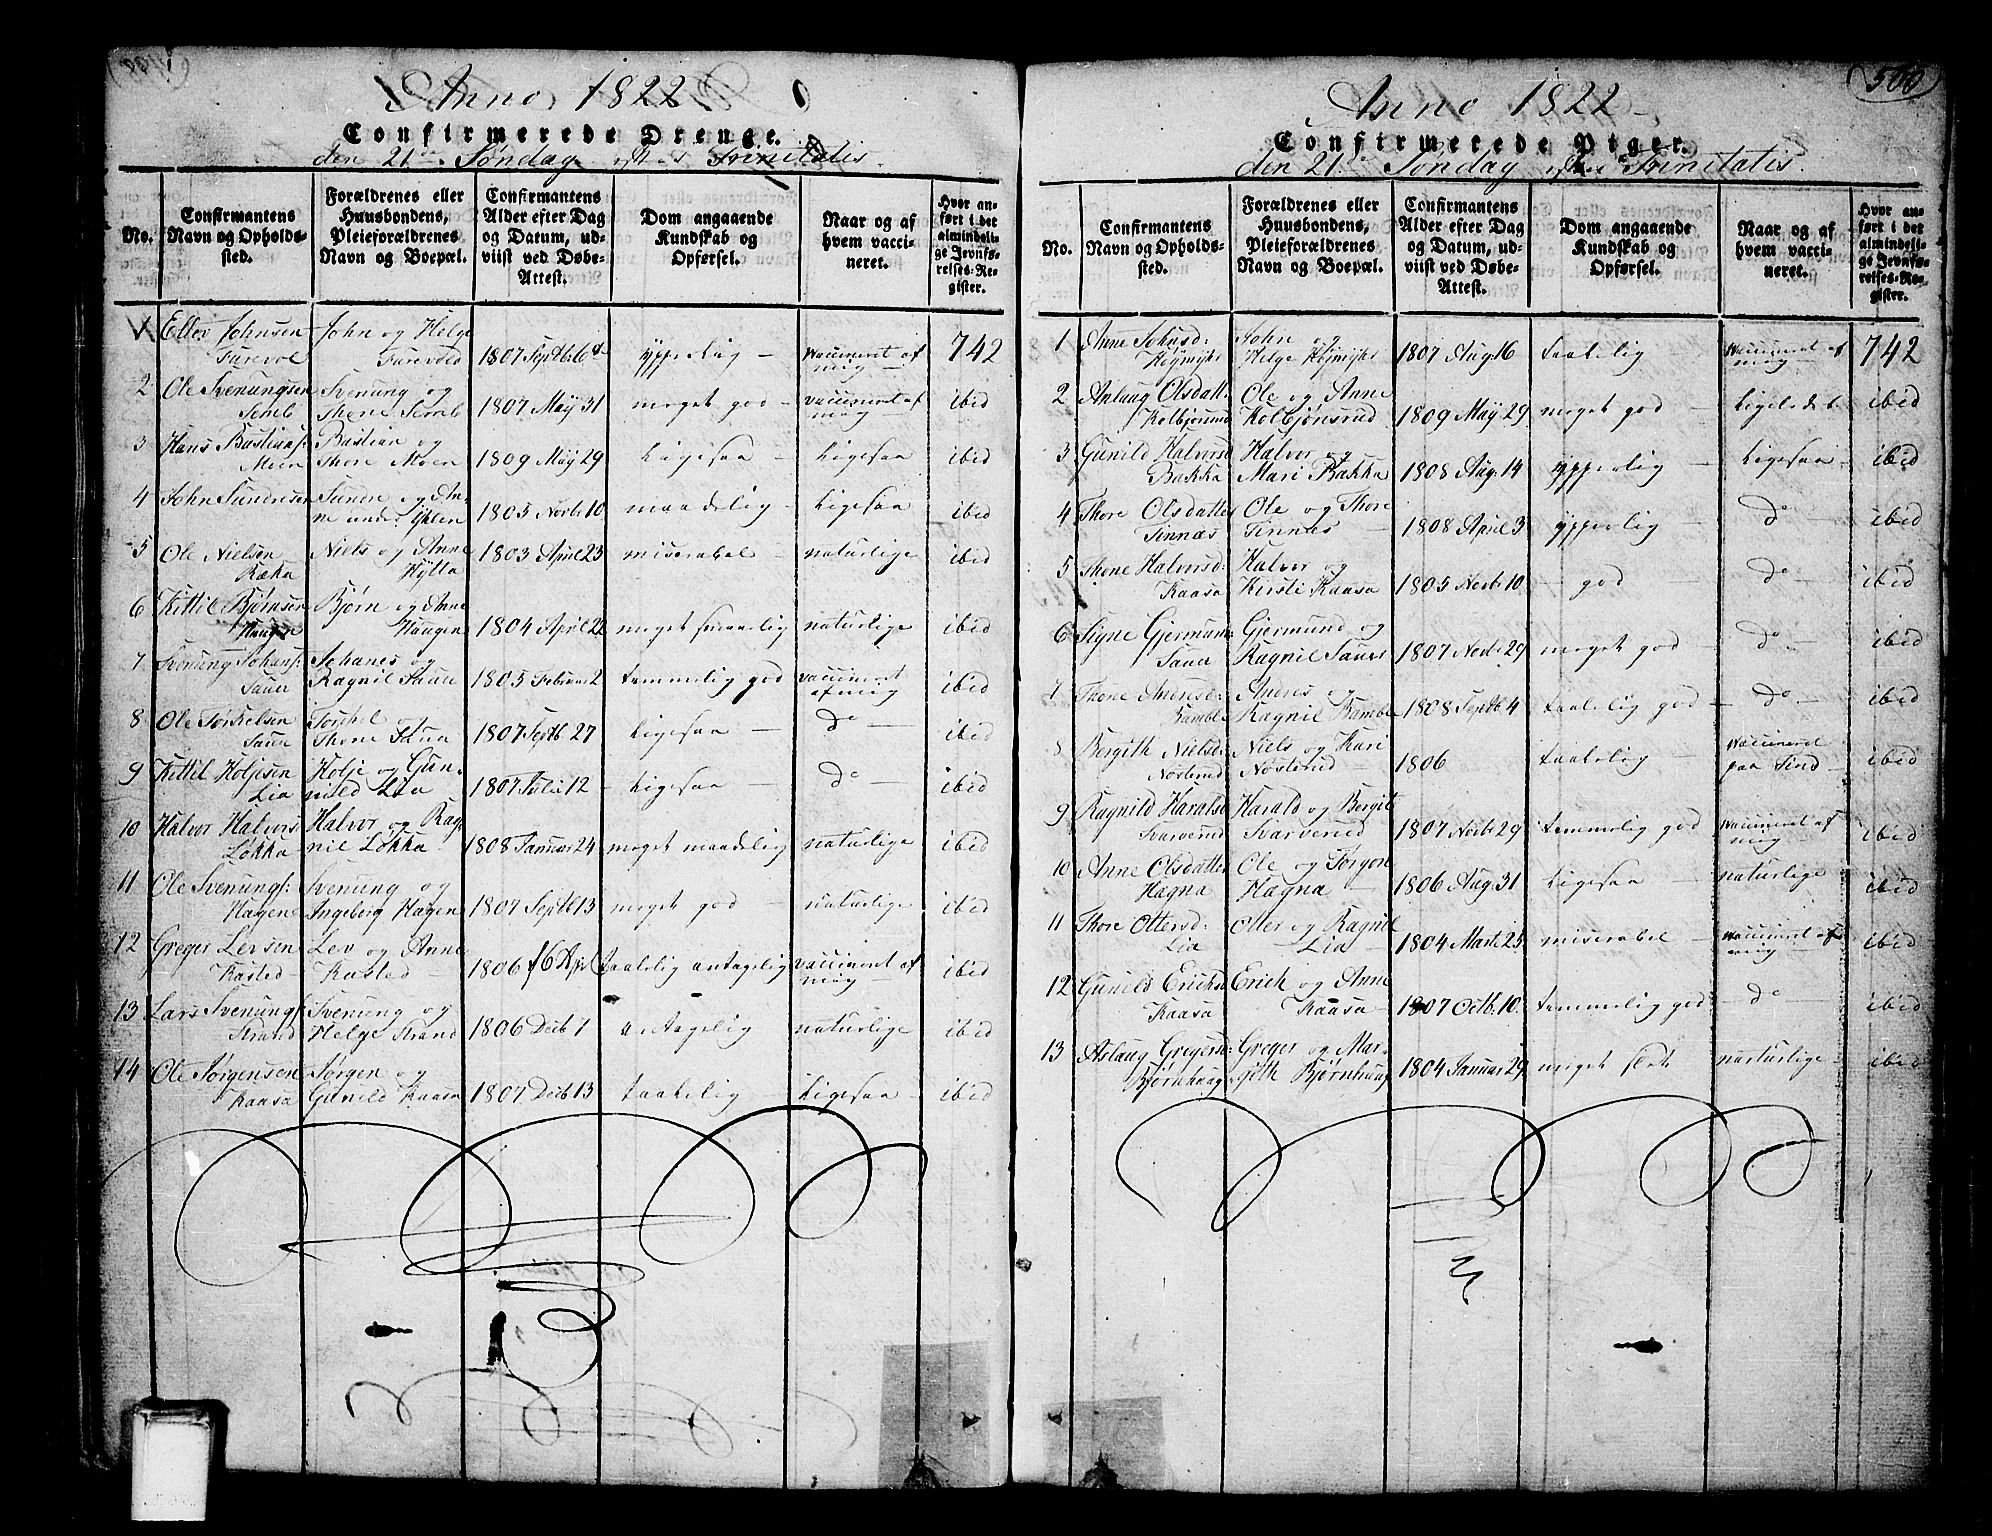 Anno 1822
Confirmerede Drenge.
den 21de Søndag efter Trinitatis.
No.
Confirmantens Navn og Opholdssted.
Forældrenes eller Huusbondens, Pleieforældrenes Navn og Boepæl.
Confirmantens Alder efter Dag og Datum, udviist ved Døbe-Attest.
Dom angaaende Kundskab og Opførsel.
Naar og af hvem vaccineret.
Hvor anført i det almindelige Jevnførelses-Register.
1 John og Helge
1807 Septbr 6 ypperlig — vaccineret af mig — 742
2 Ole Svenungsen Svenung og
Semb Thone Semb 1807 May 31 meget god — vaccineret af mig — ibid
3 Hans Bastians: Bastian og
Moen Thore Moen 1809 May 29 Ligesaa — Ligesaa — ibid
4 John Sundresen Sundre og An-
ne under: 1805 Novbr 10 maadelig — Ligesaa ibid
5 Ole Nielsen Niels og Anne
Hytta 1803 April 23 miserabel — naturlige ibid
6 Kittil Bjørnsen Bjørn og Anne
Haugen Haugen 1804 April 22 meget smaalig naturlige ibid
7 Svenung Johans: Johanes og
Saue Ragnil Saue 1805 Februar 2 temmelig god vaccineret af mig ibid
8 Ole Torkelsen Torchel og
Saue Thone Saua 1807 Septb 27 Ligesaa — do — ibid
9 Kittil Holjesen Holje og Gun-
Lia nild Lia 1807 Julii 12 Ligesaa — do — ibid
10 Halvor Halvors: Halvor og Rag-
Løkka nil Løkka 1808 Januar 24 meget maadelig naturlige ibid
11 Ole Svenungs: Svenung og
Hagen Ingeborg Hagen 1807 Septb 13 meget god — naturlige ibid
12 Greger Levsen Lev og Anne
Kasted Kasted — 1806 16 Apr taalelig antagelig vaccineret af mig — ibid
13 Lars Svenungs: Svenung og
Strand Helge Strand 1806 Decb 7 antagelig naturlige ibid
14 Ole Jørgensen Jørgen og
Kaasa Gunild Kaasa 1807 Decb 13 taalelig — Ligesaa — ibid
500
Anno 1822
Confirmerede Piger.
den 21de Søndag efter Trinitatis.
No.
Confirmantens Navn og Opholdssted.
Forældrenes eller Huusbondens, Pleieforældrenes Navn og Boepæl.
Confirmantens Alder efter Dag og Datum, udviist ved Døbe-Attest.
Dom angaaende Kundskab og Opførsel.
Naar og af hvem vaccineret.
Hvor anført i det almindelige Jevnførelses-Register.
1 Anne Johnsd: John og
Helge 1807 Aug 16 taalelig vaccineret af mig — 742
2 Anlaug Olsdatt: Ole og Anne
Kolbjørnsrud 1809 May 29 meget god — Ligeledes ibid
3 Gunild Halvorsd Halvor og
Bakka Mari Bakka 1808 Aug. 14 ypperlig — Ligesaa — ibid
4 Thore Olsdatter Ole og Thore
Tinnæs Tinnæs — 1808 April 3 ypperlig — do — ibid
5 Thone Halvorsd: Halvor og
Kaasa Kirsti Kaasa 1805 Novbr 10 — god — do — ibid
6 Signe Gjermun: Gjermund og
Saue Ragnil Saues 1807 Novbr 29 meget god — do — ibid
7 Thone Andresd: Andres og
Bamble Ragnil Bamble 1808 Septb 4 taalelig god — do — ibid
8 Bergith Nielsd: Niels og Kari
Nøsterud Nøsterud — 1806 taalelig — vaccineret paa — ibid
9 Ragnild Haralsd Harald og Bergit
Svarverud Svarverud 1807 Novbr 29 temmelig god vaccineret af mig — ibid
10 Anne Olsdatter Ole og Jørgon
Hægna Hægna — 1806 Aug 31 Ligesaa — naturlige ibid
11 Thore Ottersd: Otter og Ragnil
Lia Lia — 1804 Marti 25 miserabel — vaccineret af mig — ibid
12 Gunild Ericksd Erich og Anne
Kaasa Kaasa — 1807 Octb. 10. temmelig god — do — ibid
13 Aslaug Gregersd: Greger og Mar-
Bjørnhaug gith Bjørnhaug 1804 Januar 29 meget slet naturlige ibid